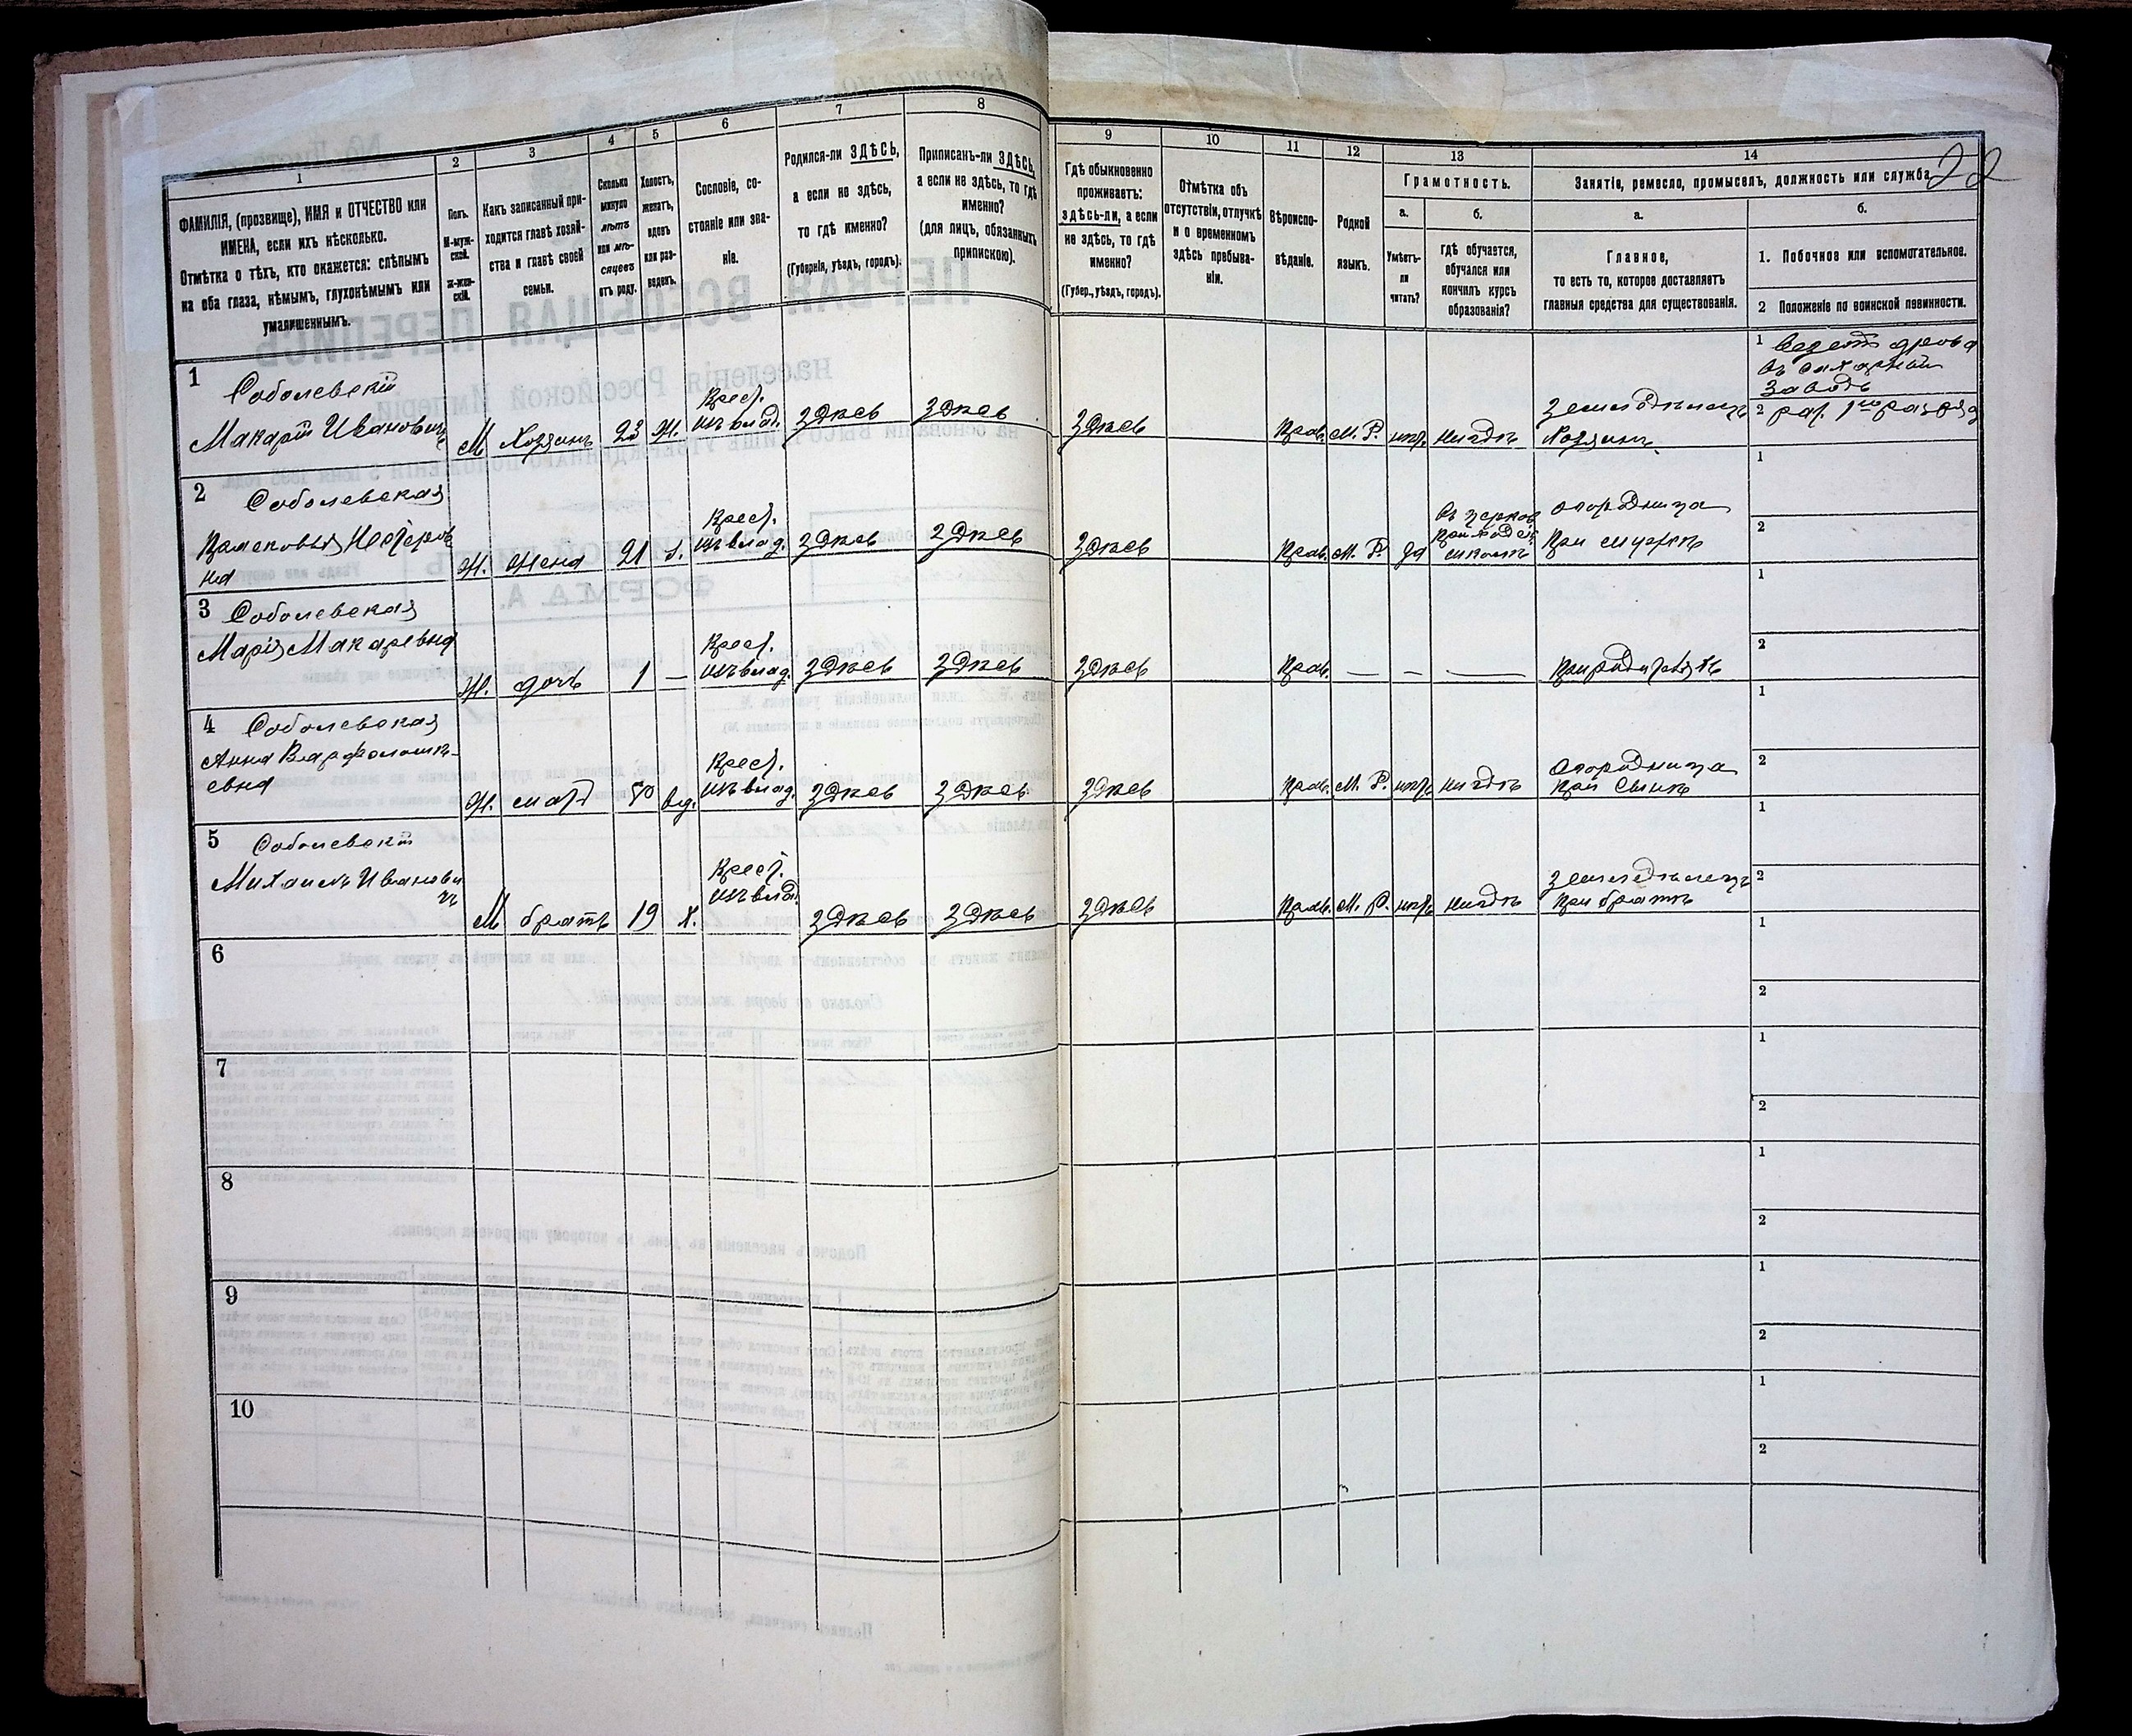 22
1
2
3
4
5
6
7
8
ФАМИЛІЯ, (прозвище), ИМЯ и ОТЧЕСТВО или
ИМЕНА, если ихъ нѣсколько.
Отмѣтка о тѣхъ, кто окажется: слѣпымъ
на оба глаза, нѣмымъ, глухонѣмымъ или
умалишеннымъ.
Полъ.
М-муж-
ской.
Ж-жен-
скій.
Какъ записанный при-
ходится главѣ хозяй-
ства и главѣ своей
семьи.
Сколько
минуло
лѣтъ
или мѣ-
сяцевъ
отъ роду.
Холостъ,
женатъ,
вдовъ
или раз-
веденъ.
Сословіе, со-
стояніе или зва-
ніе.
Родился-ли ЗДѢСЬ,
а если не здѣсь,
то гдѣ именно?
(Губернія, уѣздъ, городъ).
Приписанъ-ли ЗДѢСЬ,
а если не здѣсь, то гдѣ
именно?
(для лицъ, обязанныхъ
припискою).
9
10
11
12
13
14
Гдѣ обыкновенно
проживаетъ:
здѣсь-ли, а если
не здѣсь, то гдѣ
именно?
(Губер., уѣздъ, городъ).
Отмѣтка объ
отсутствіи, отлучкѣ
и о временномъ
здѣсь пребыва-
ніи.
Вѣроиспо-
вѣданіе.
Родной
языкъ.
Грамотность.
а.
б.
Умѣетъ-
ли
читать?
Гдѣ обучается,
обучался или
кончилъ курсъ
образованія?
Занятіе, ремесло, промыселъ, должность или служба
а.
б.
Главное,
то есть то, которое доставляетъ
главныя средства для существованія.
1. Побочное или вспомогательное.
2 Положеніе по воинской повинности.
1
Соболевскій
Макарій Ивановичъ
М
Хозяинъ
23
Ж.
Крест.
изъ влад.
здѣсь
здѣсь
здѣсь
Прав.
М. Р.
нѣтъ
нигдѣ
Земледѣлецъ
Хозяинъ
1 везетъ дрова
въ сахарный
заводъ
2 рат. 1го разряд
2
Соболевская
Нестеров
на
Ж.
Жена
21
З.
Крест.
изъ влад.
здѣсь
здѣсь
здѣсь
Прав.
М. Р.
да
въ церков
приходск.
школѣ
огородница
при мужѣ
1
2
3
Соболевская
Марія Макаревна
Ж.
дочь
1
—
Крест.
изъ влад.
здѣсь
здѣсь
здѣсь
Прав.
—
—
—
при родителяхъ
1
2
4
Соболевская
Анна Варфоломѣ-
евна
Ж.
мать
вд.
Крест.
изъ влад.
здѣсь
здѣсь
здѣсь
Прав.
М. Р.
нѣтъ
нигдѣ
Огородница
при сынѣ
1
2
5
Соболевскій
Михаилъ Иванови
чъ
М
братъ
19
Х.
Крест.
изъ влад.
здѣсь
здѣсь
здѣсь
Прав.
М. Р.
нѣтъ
нигдѣ
Земледѣлецъ
при братѣ
1
2
6
1
2
7
1
2
8
1
2
9
1
2
10
1
2